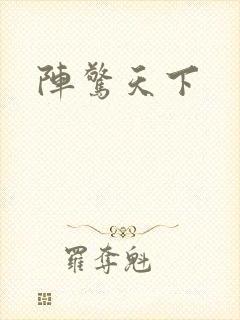 陣驚天下
羅奪魁